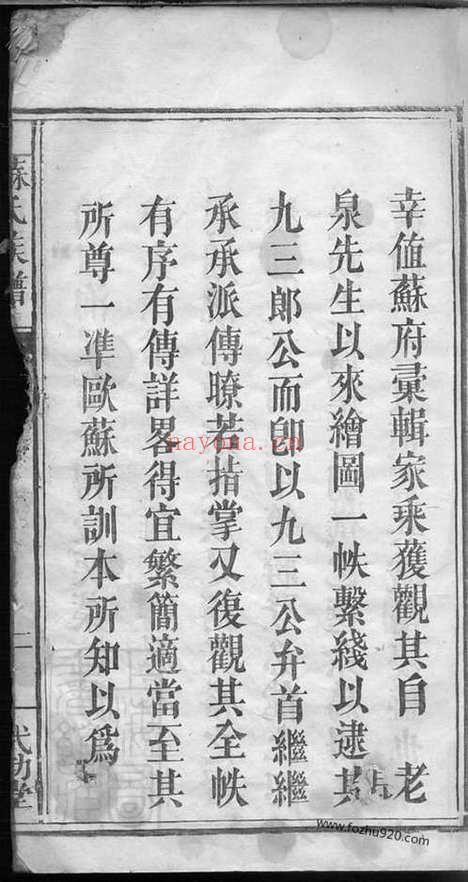 幸值蘇府彙輯家乘獲觀其自 老
泉先生以來繪圖一帙繫綫以逮其
九三郎公而卽以九三公弁首繼繼
承承派傳瞭若指掌又復觀其全帙
有序有傳詳畧得宜繁簡適當至其
所尊一準歐蘇所訓本所知以爲
蘇氏族譜
二
武功堂
nayona.cn
www.fozhu920.com